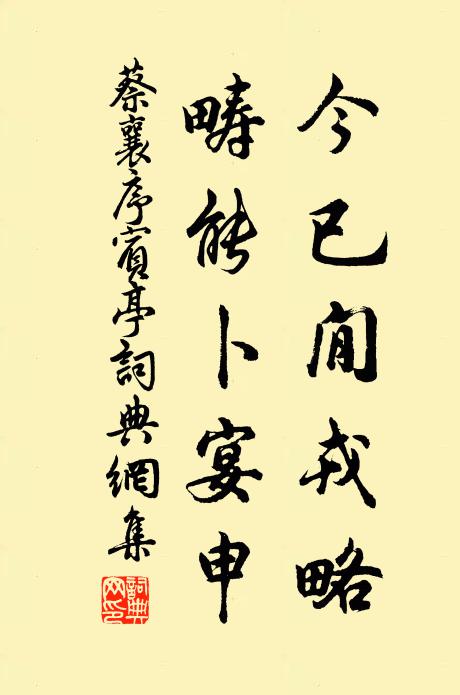 今已閒戎略
疇能卜宴申
蔡襄序賓亭詞典網集
詞典網印